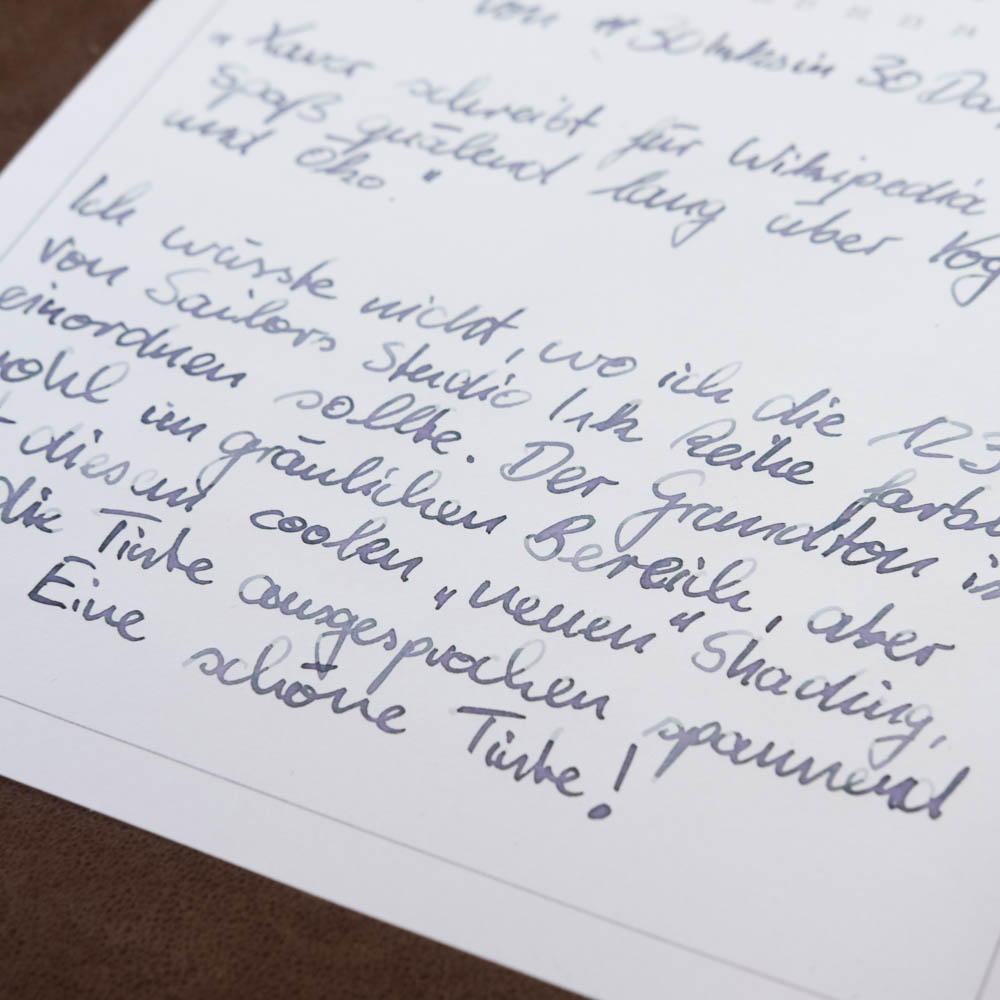 von #30Inksin 30Da
„Xaver schreibt für Wikipedia
Spaß quälend lang über Yog
und Öko."
Ich wüsste nicht, wo ich die 123
von Sailors Studio Ink Reihe farb
einordnen sollte. Der Grundton i
wohl im gräulichen Bereich, aber
t diesem coolen „neuen" Shading,
die Tinte ausgesprochen spannend
Eine schöne Tinte!